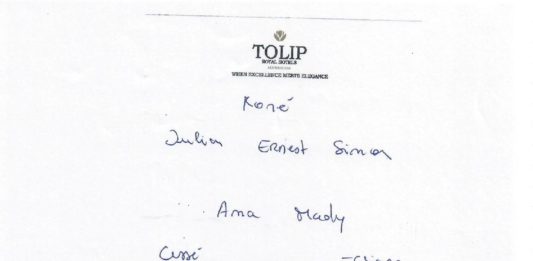 TOLIP
ROYAL HOTELS
WHEN EXCELLENCE MEETS ELEGANCE
Koné
Julien Ernest Simon
Ana Mady
Cissé